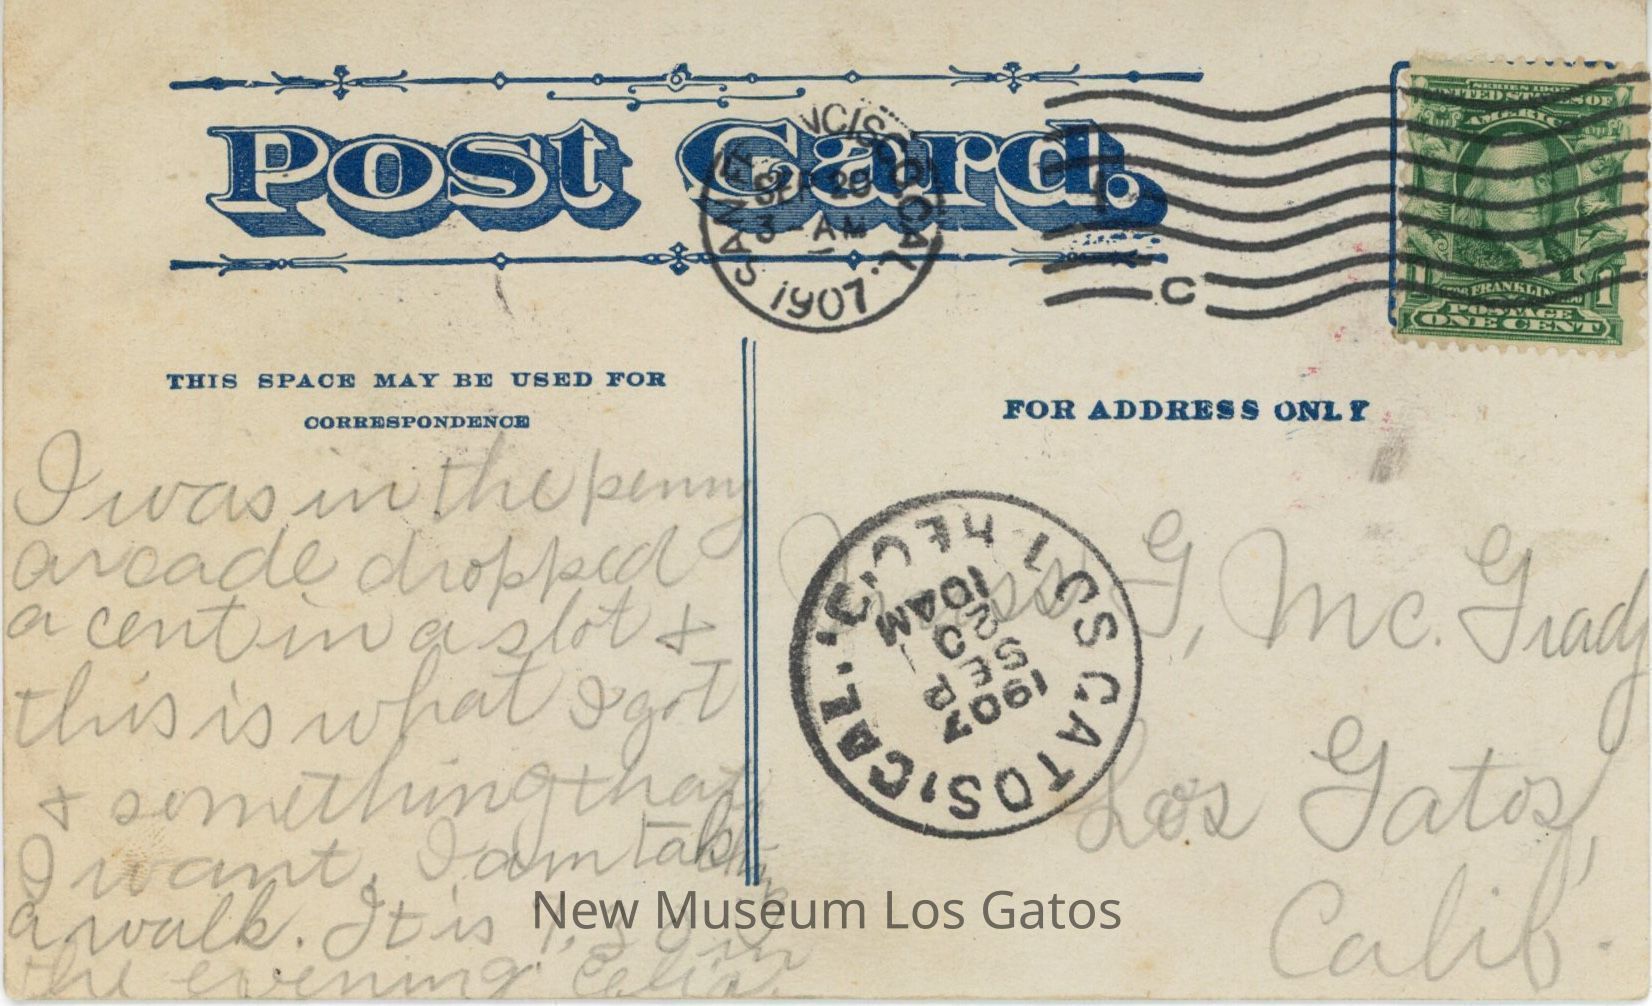 Post Card.
SAN FRANCISCO, CAL.
SEP 20
3 - AM
1907
C
SERIES 1902
UNITED STATES OF
AMERICA
FRANKLIN
1 1
POSTAGE
ONE CENT
THIS SPACE MAY BE USED FOR
CORRESPONDENCE
FOR ADDRESS ONLY
I was in the penny
arcade dropped
a cent in a slot &
this is what I got
& something that
I want. I am taking
a walk. It is in
the evening.
LOS GATOS, CAL.
REC'D.
10 AM
1907
Miss G, Mc. Grady
Los Gatos,
Calif.
New Museum Los Gatos